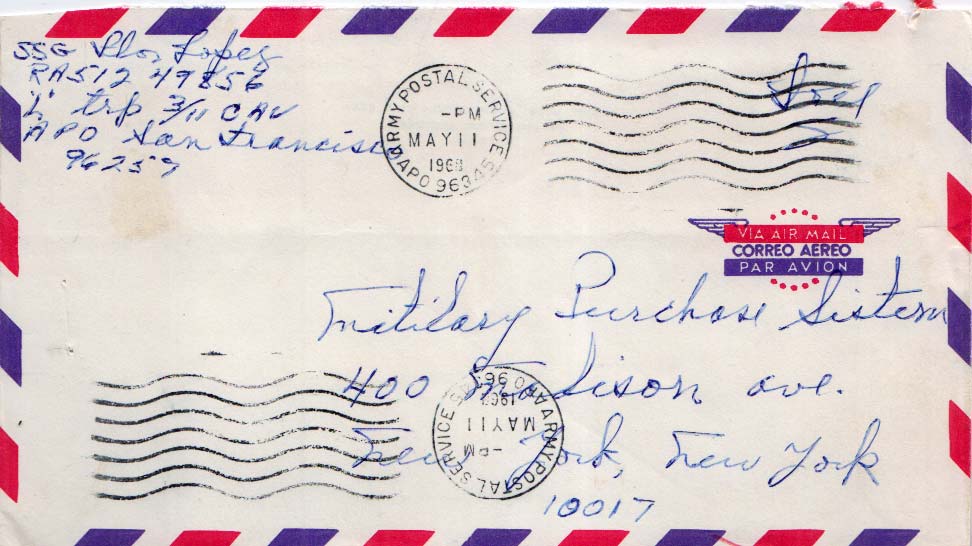 SSG Lopez
RA512 49856
"L" trp 3/11 CAV
APO San Francisco
96257
ARMY POSTAL SERVICE
-PM
MAY 11
1968
APO 96345
Free
VIA AIR MAIL
CORREO AEREO
PAR AVION
Military Purchase Sistem
400 Madison ave.
New York, New York
10017
ARMY POSTAL SERVICE
-PM
MAY 11
1968
APO 96345